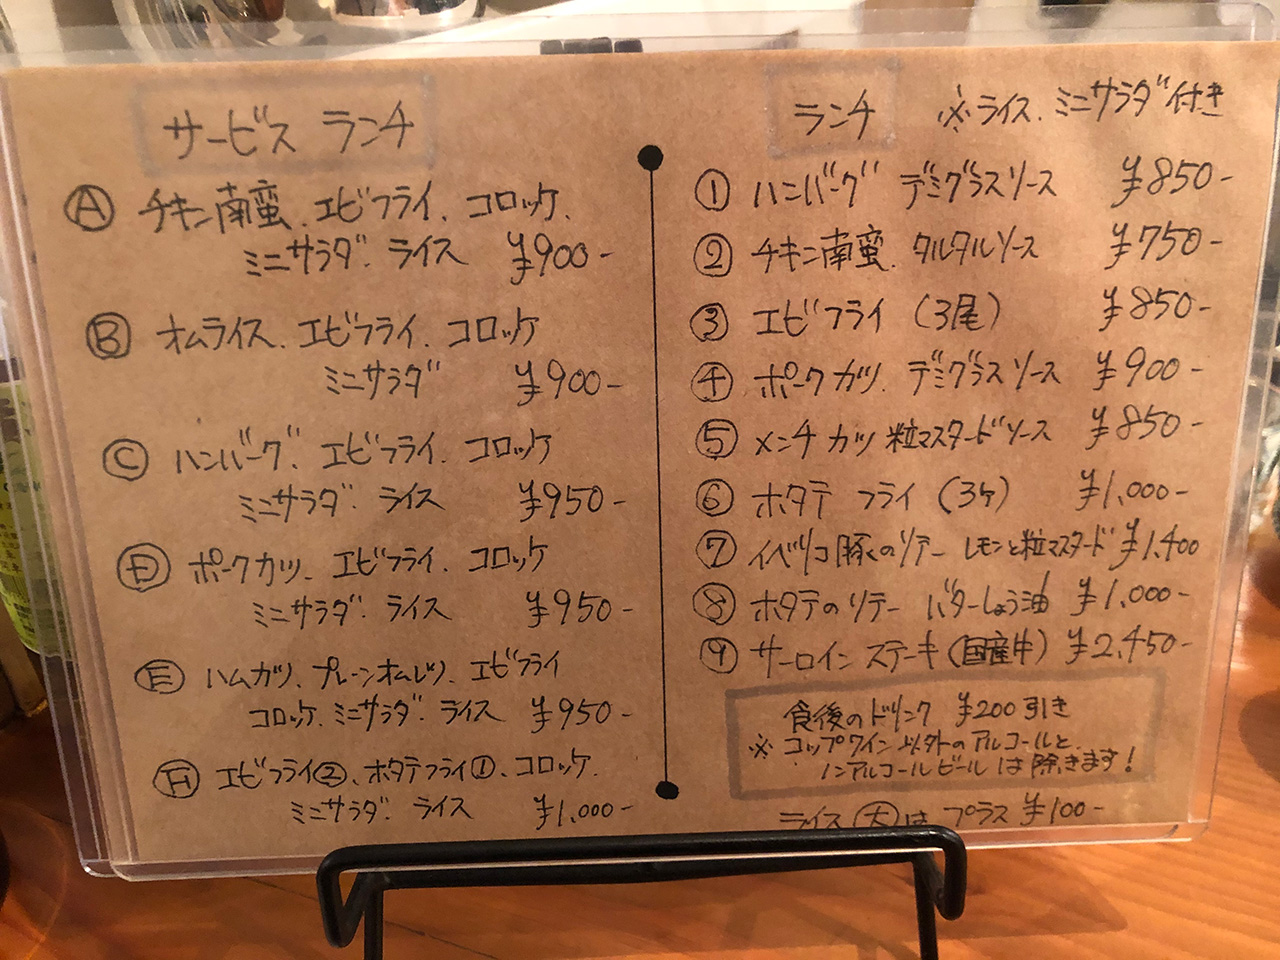 サービス ランチ
Ⓐ チキン南蛮、エビフライ、コロッケ、
ミニサラダ、ライス ¥900-
Ⓑ オムライス、エビフライ、コロッケ
ミニサラダ ¥900-
Ⓒ ハンバーグ、エビフライ、コロッケ
ミニサラダ、ライス ¥950-
Ⓓ ポークカツ、エビフライ、コロッケ
ミニサラダ、ライス ¥950-
Ⓔ ハムカツ、プレーンオムレツ、エビフライ
コロッケ、ミニサラダ、ライス ¥950-
Ⓕ エビフライ②、ホタテフライ①、コロッケ、
ミニサラダ、ライス ¥1,000-
ランチ ※ライス、ミニサラダ付き
① ハンバーグ デミグラスソース ¥850-
② チキン南蛮、タルタルソース ¥750-
③ エビフライ (3尾) ¥850-
④ ポークカツ、デミグラスソース ¥900-
⑤ メンチカツ 粒マスタードソース ¥850-
⑥ ホタテ フライ (3ヶ) ¥1,000-
⑦ イベリコ豚のソテー レモンと粒マスタード ¥1,400
⑧ ホタテのソテー バターしょう油 ¥1,000-
⑨ サーロインステーキ(国産牛) ¥2,450-
食後のドリンク ¥200引き
※ コップワイン以外のアルコールと、
ノンアルコールビールは除きます!
ライス(大)は プラス ¥100-